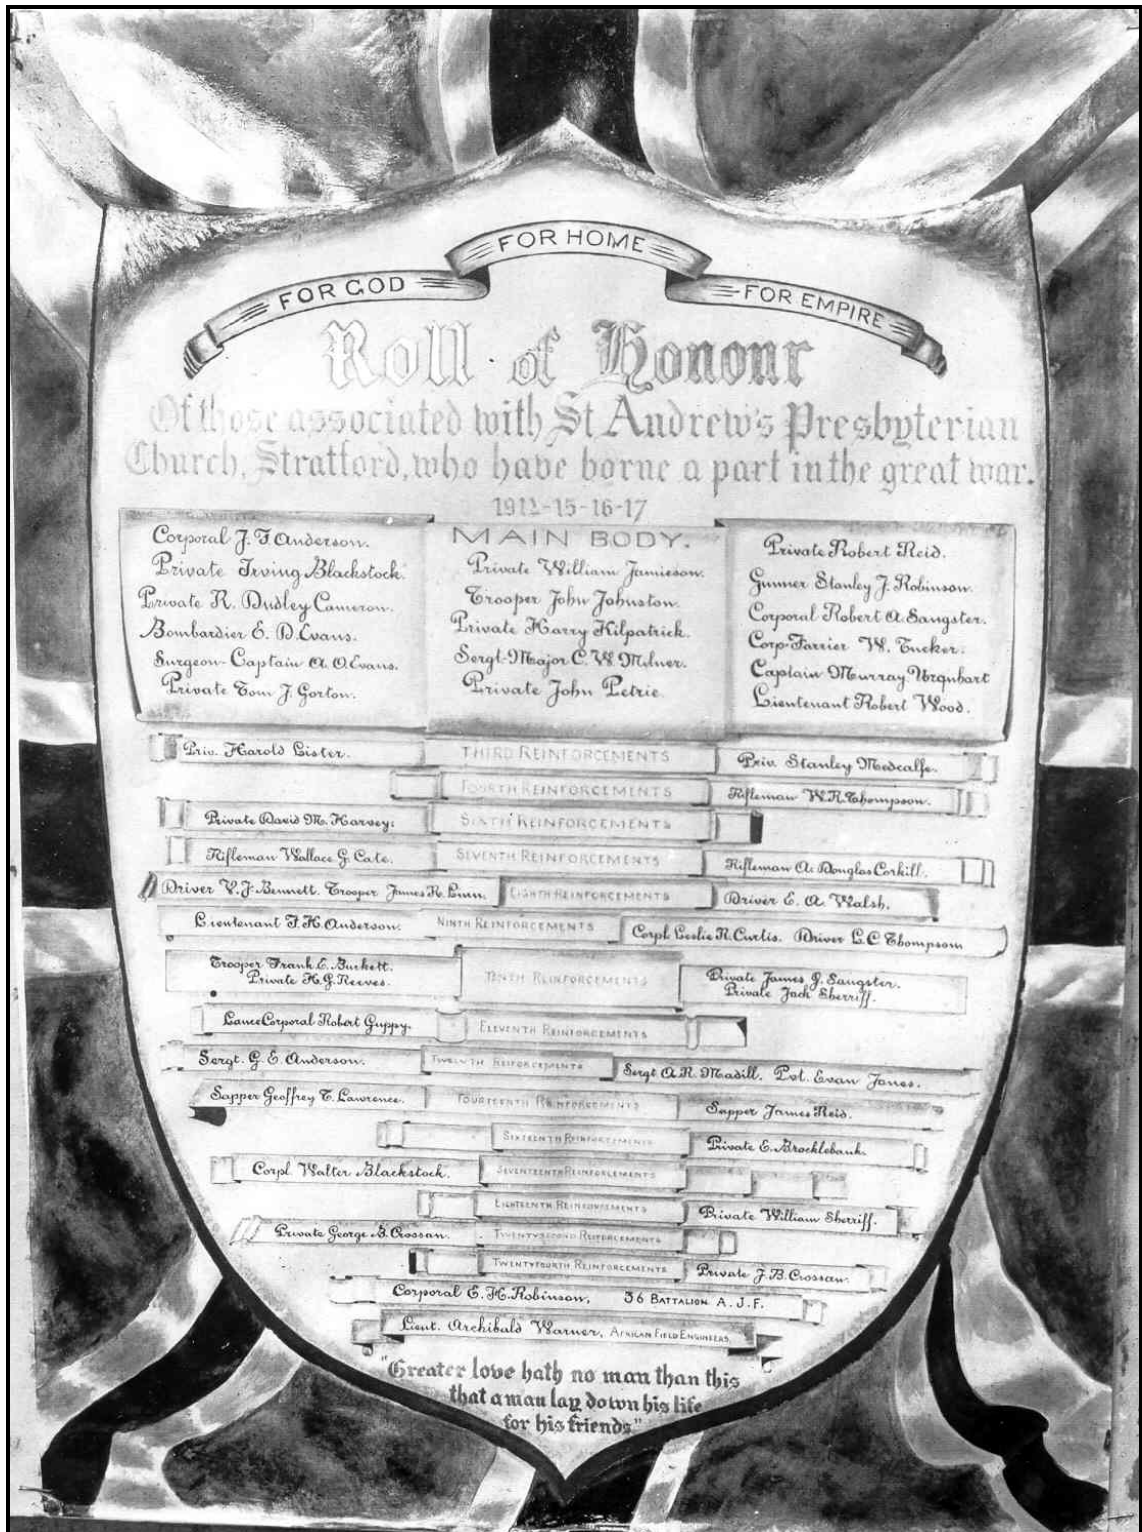 FOR GOD FOR HOME FOR EMPIRE
Roll of Honour
Of those associated with St Andrew's Presbyterian
Church, Stratford, who have borne a part in the great war.
1914-15-16-17
MAIN BODY.
Corporal J. F. Anderson.
Private Irving Blackstock.
Private R. Dudley Cameron.
Bombardier E. D. Evans.
Surgeon-Captain A. O. Evans.
Private Tom J. Gorton.
Private William Jamieson.
Trooper John Johnston.
Private Harry Kilpatrick.
Sergt-Major C. W. Milner.
Private John Petrie
Private Robert Reid.
Gunner Stanley J. Robinson.
Corporal Robert A. Sangster.
Corp-Farrier W. Tucker.
Captain Murray Urquhart
Lieutenant Robert Wood.
Priv. Harold Lister. THIRD REINFORCEMENTS Priv. Stanley Medcalfe.
FOURTH REINFORCEMENTS Rifleman W. R. Thompson.
Private David M. Harvey. SIXTH REINFORCEMENTS
Rifleman Wallace G. Cate. SEVENTH REINFORCEMENTS Rifleman A. Douglas Corkill.
Driver V. J. Bennett. Trooper James H. Lunn. EIGHTH REINFORCEMENTS Driver E. A. Walsh.
Lieutenant F. H. Anderson. NINTH REINFORCEMENTS Corpl Leslie R. Curtis. Driver L. C Thompson
Trooper Frank E. Burkett. TENTH REINFORCEMENTS Private James G. Sangster.
Private H. G. Reeves. Private Jack Sherriff.
Lance Corporal Robert Guppy. ELEVENTH REINFORCEMENTS
Sergt. G. E. Anderson. TWELVTH REIFORCEMENTS Sergt A. R. Madill. Pvt. Evan Jones.
Sapper Geoffrey T. Lawrence. FOURTEENTH REINFORCEMENTS Sapper James Reid.
SIXTEENTH REINFORCEMENTS Private E. Brocklebank.
Corpl Walter Blackstock. SEVENTEENTH REINFORCEMENTS
EIGHTEENTH REINFORCEMENTS Private William Sherriff.
Private George B. Crossan. TWENTYSECOND REIFORCEMENTS
TWENTYFOURTH REINFORCEMENTS Private J. B. Crossan.
Corporal E. H. Robinson, 36 BATTALION A.J.F.
Lieut. Archibald Warner, AFRICAN FIELD ENGINEERS.
"Greater love hath no man than this
that a man lay down his life
for his friends."